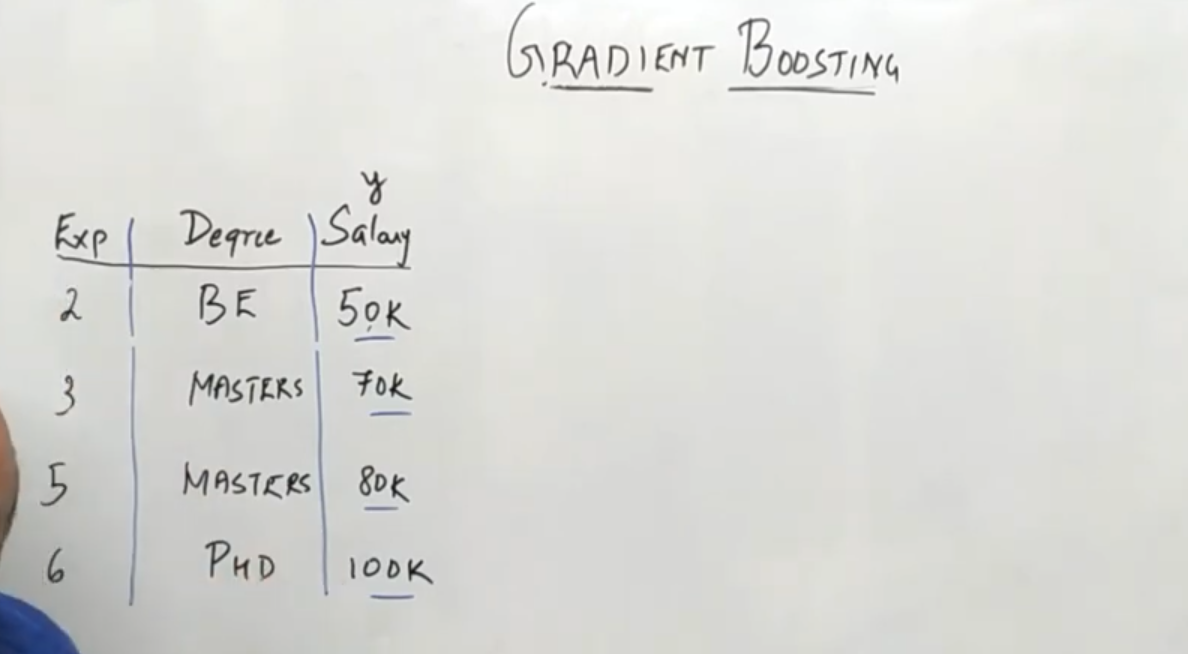 GRADIENT BOOSTING
y
Exp Degree Salary
2 BE 50K
3 MASTERS 70K
5 MASTERS 80K
6 PHD 100K